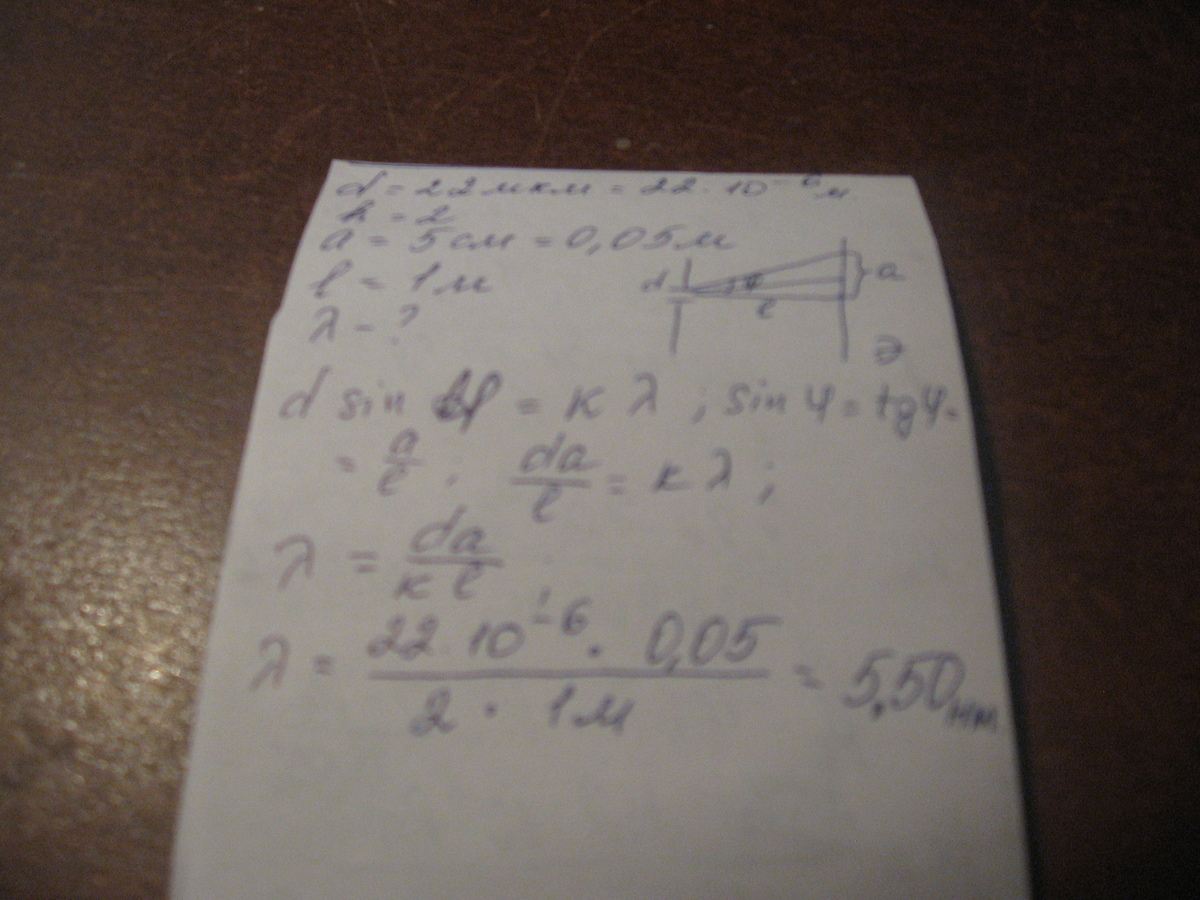 d = 22мкм = 22·10⁻⁶м
k = 2
a = 5см = 0,05м
l = 1м
λ - ?
d φ l a Э
d sin φ = к λ ; sin φ = tg φ =
= a/l ; da/l = к λ ;
λ = da/кl
λ = 22·10⁻⁶ · 0,05 / 2 · 1м = 5,50нм